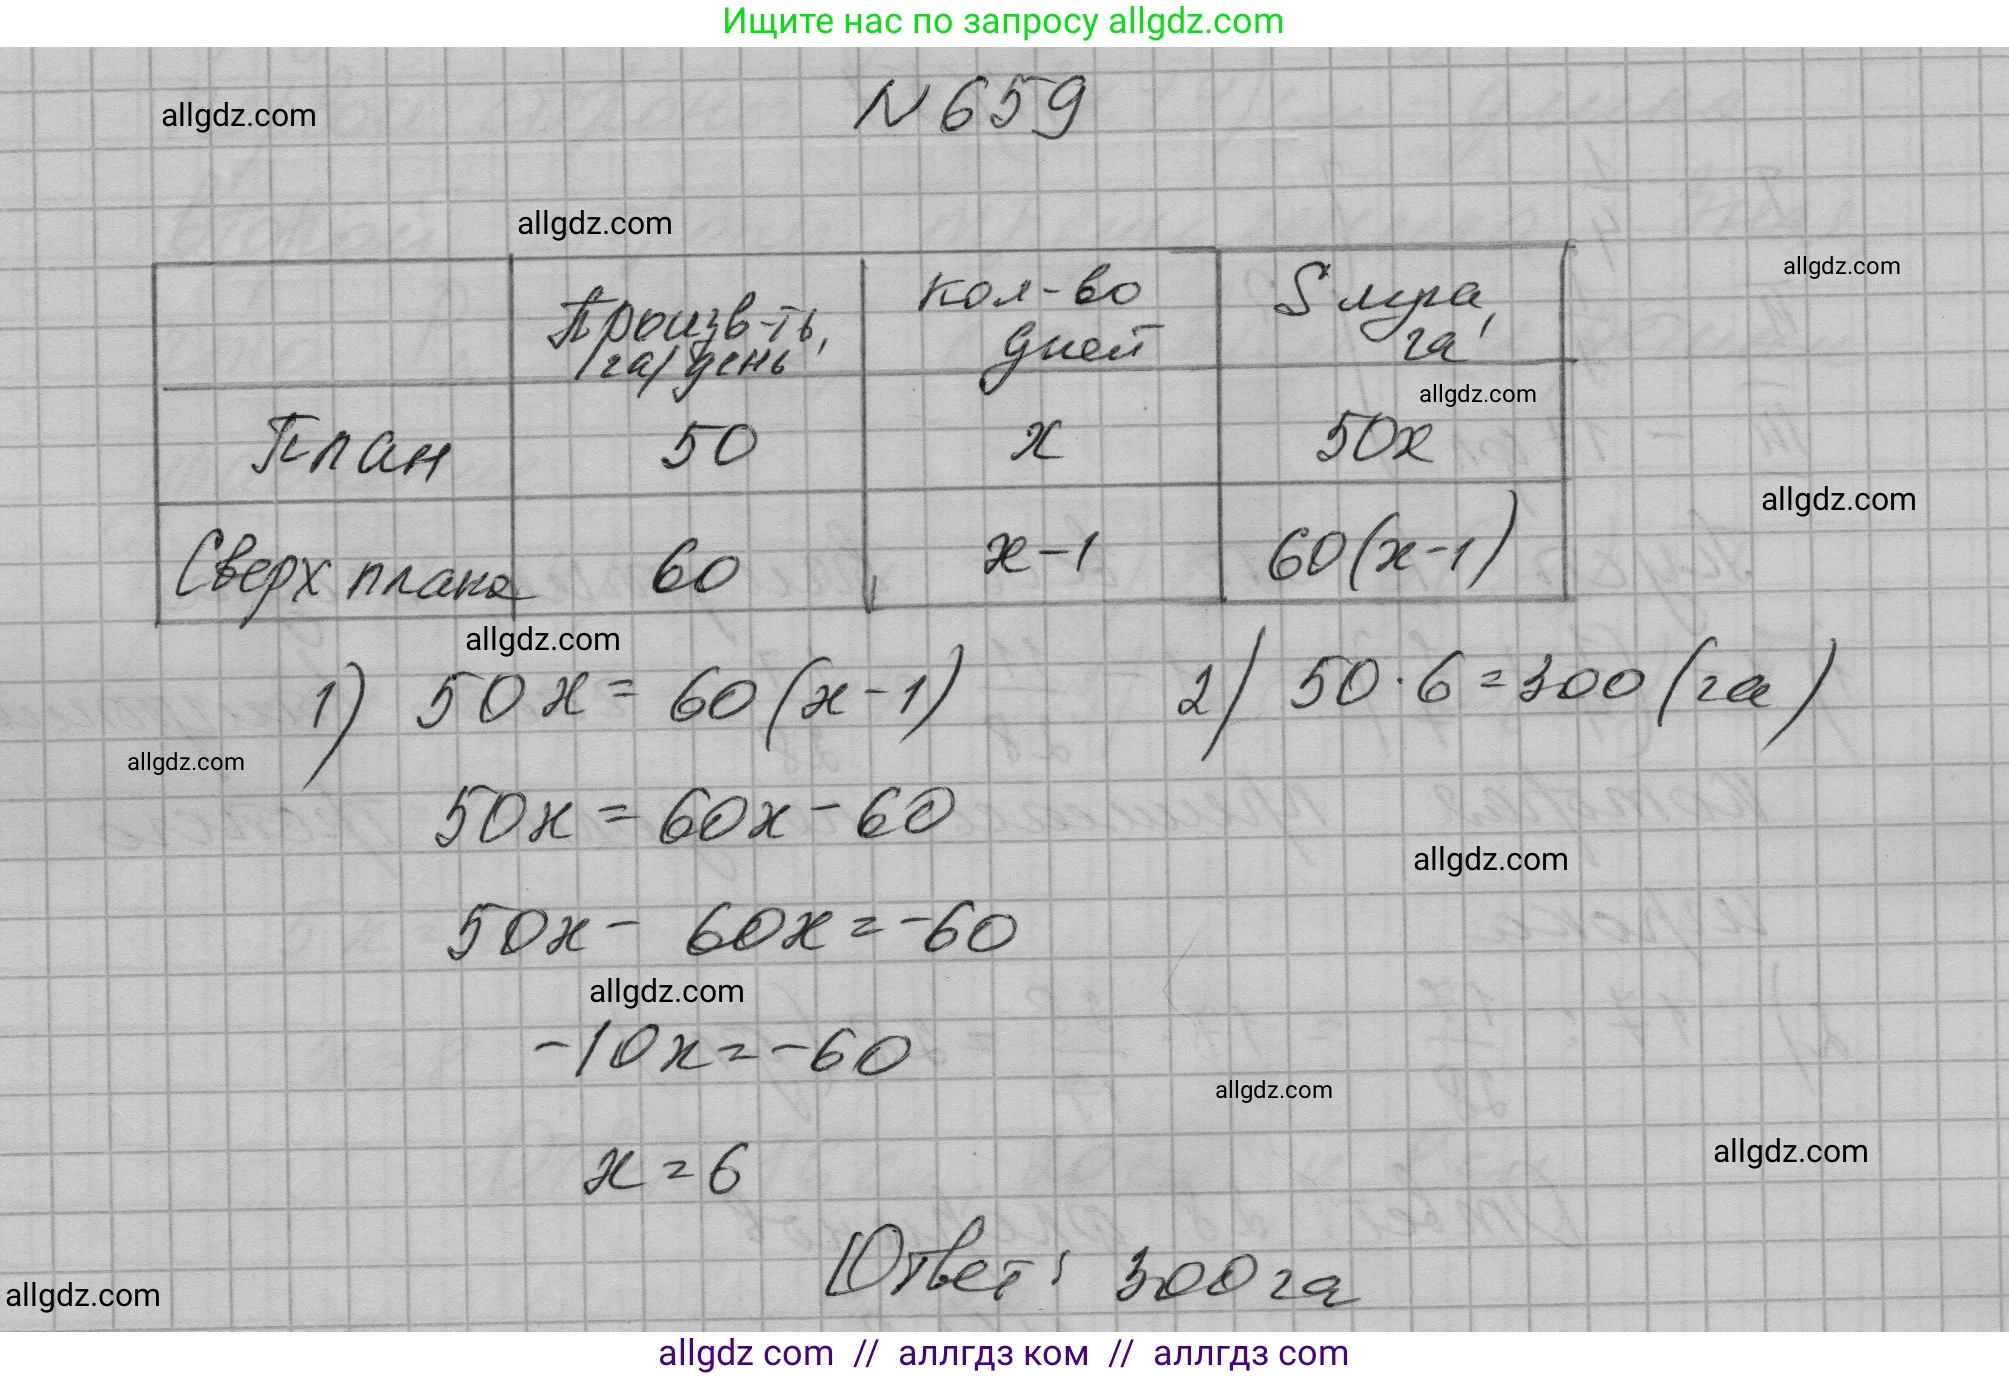 Ищите нас по запросу allgdz.com
N 659
allgdz.com
allgdz.com
allgdz.com
Произв-ть, га/день
кол-во дней
S луга, га
allgdz.com
План 50 x 50x
allgdz.com
Сверх плана 60 x-1 60(x-1)
allgdz.com
1) 50x = 60(x-1)
2) 50·6=300(га)
allgdz.com
50x = 60x - 60
allgdz.com
50x - 60x = -60
allgdz.com
-10x = -60
allgdz.com
allgdz.com
x = 6
Ответ: 300 га
allgdz.com
allgdz com // аллгдз ком // аллгдз com